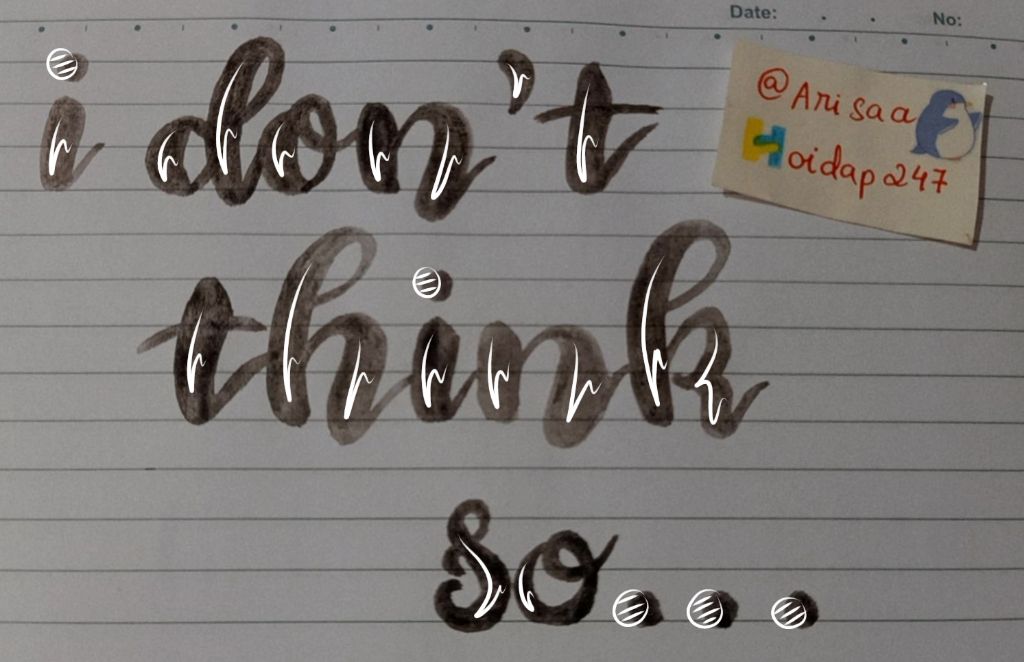 Date: No:
i don't
@Arisaa
Hoidap247
think
so...